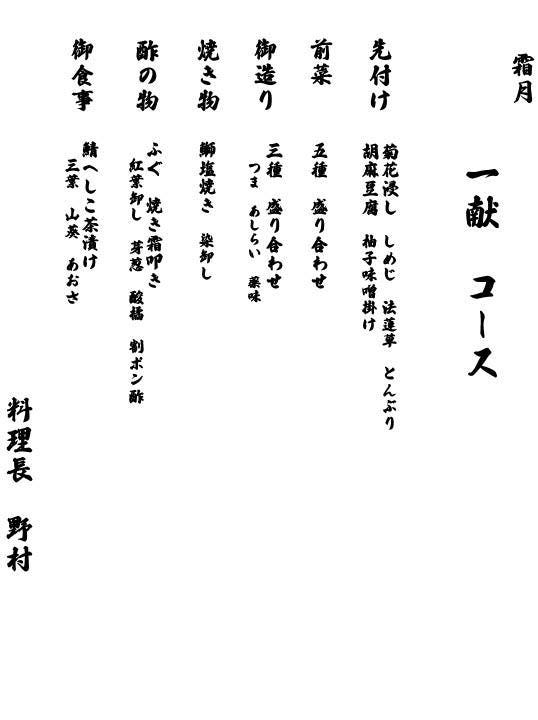 霜月
一献 コース
先付け
菊花浸し しめじ 法蓮草 とんぶり
胡麻豆腐 柚子味噌掛け
前菜
五種 盛り合わせ
御造り
三種 盛り合わせ
つま あしらい 薬味
焼き物
鰤塩焼き 染卸し
酢の物
ふぐ 焼き霜叩き
紅葉卸し 芽葱 酸橘 割ポン酢
御食事
鯖へしこ茶漬け
三葉 山葵 あおさ
料理長 野村